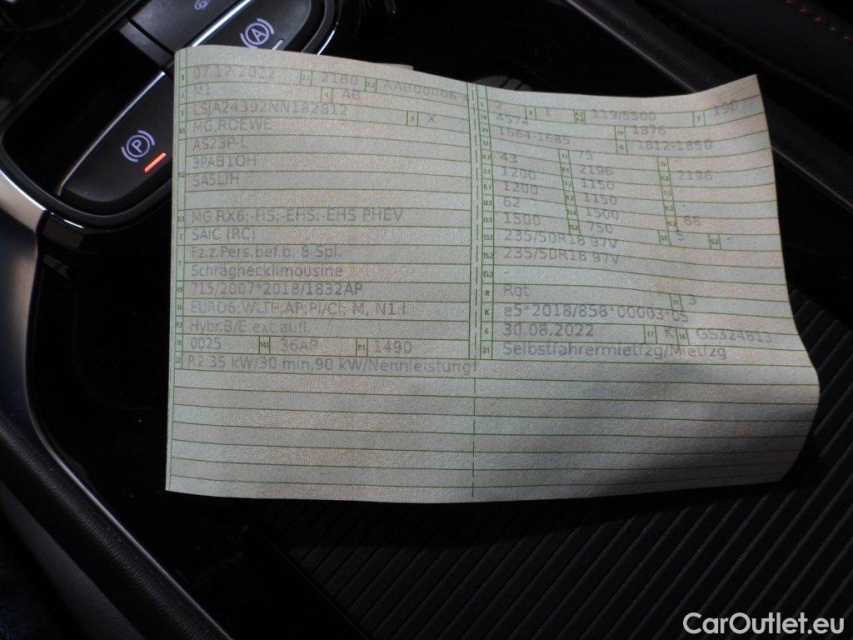 07.12.2022 2180
M1 AB
LSJA24392NN182812 X
MG,ROEWE
AS23P-L
3PAB1OH
SA5LJH
MG RX6;-HS;-EHS;-EHS PHEV
SAIC (RC)
Fz.z.Pers.bef.b. 8 Spl.
Schräghecklimousine
715/2007*2018/1832AP
EURO6;WLTP;AP;PI/CI; M, N1 I
Hybr.B/E ext.aufl.
0025 36AP 1490
P.2:35 kW/30 min,90 kW/Nennleistung
2 1 119/5500 190
4574 1876
1664-1685 1812-1850
43 75
1200 2196 2196
1200 1150
62 1150
1500 1500 68
235/50R18 97V 750 5
235/50R18 97V
Rot 3
e5*2018/858*00003*05
30.08.2022 K GS324813
Selbstfahrermietfzg/Mietfzg
CarOutlet.eu